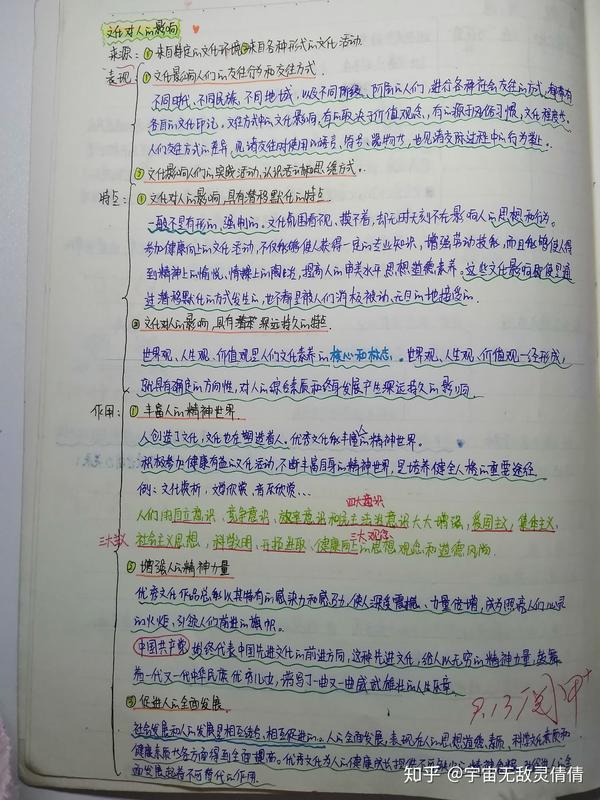 文化对人的影响
来源：①来自特定的文化环境②来自各种形式的文化活动.
表现：①文化影响人们的交往行为和交往方式.
不同时代、不同民族、不同地域，以及不同阶级、阶层的人们，进行各种社会交往的方式，都带有
各自的文化印记。交往方式中的文化影响，有的取决于价值观念，有的源于风俗习惯，文化程度等.
人们交往方式的差异，见诸交往时使用的语言，符号、器物等，也见诸交际过程中的行为举止。
②文化影响人们的实践活动，认识活动和思维方式。
特点：①文化对人的影响，具有潜移默化的特点.
一般不是有形的、强制的。文化氛围看不见、摸不着，却无时无刻不在影响人的思想和行为。
参加健康向上的文化活动，不仅能够使人获得一定的专业知识，增强劳动技能，而且能够使人得
到精神上的愉悦、情操上的陶冶，提高人的审美水平 思想道德素养。这些文化影响
过潜移默化的方式发生的，也不都是被人们消极被动、无目的地接受的.
②文化对人的影响，具有深远持久的特点.
世界观、人生观、价值观是人们文化素养的核心和标志。世界观、人生观、价值观一经形成，
就具有确定的方向性，对人的综合素质和终身发展产生深远持久的影响.
作用：①丰富人的精神世界.
人创造了文化，文化也在塑造着人。优秀文化能丰富人的精神世界。
积极参加健康有益的文化活动，不断丰富自身的精神世界，是培养健全人格的重要途径
例：文化赏析，文娱欣赏、音乐欣赏...
四大意识
人们的自立意识、竞争意识、效率意识和民主法治意识大大增强，爱国主义，集体主义，
三大主义 三大观念
社会主义思想，科学文明，开拓进取，健康向上的思想观念和道德风尚.
②增强人的精神力量
优秀文化作品总能以其特有的感染力和感召力，使人深受震撼、力量倍增，成为照亮人们心灵
的火炬，引领人们前进的旗帜。
中国共产党始终代表中国先进文化的前进方向，这种先进文化，给人以无穷的精神力量，鼓舞
着一代又一代中华民族优秀儿女，谱写了一曲又一曲威武雄壮的人生乐章
③促进人的全面发展.
9.13阅 甲+
社会发展和人的发展是相互结合、相互促进的。人的全面发展，表现在人的思想道德素质、科学文化素质和
健康素质等各方面得到全面提高。优秀文化为人的健康成长提供不可缺少的精神食粮，对促进人的全
面发展起着不可替代的作用.
知乎 @宇宙无敌灵倩倩